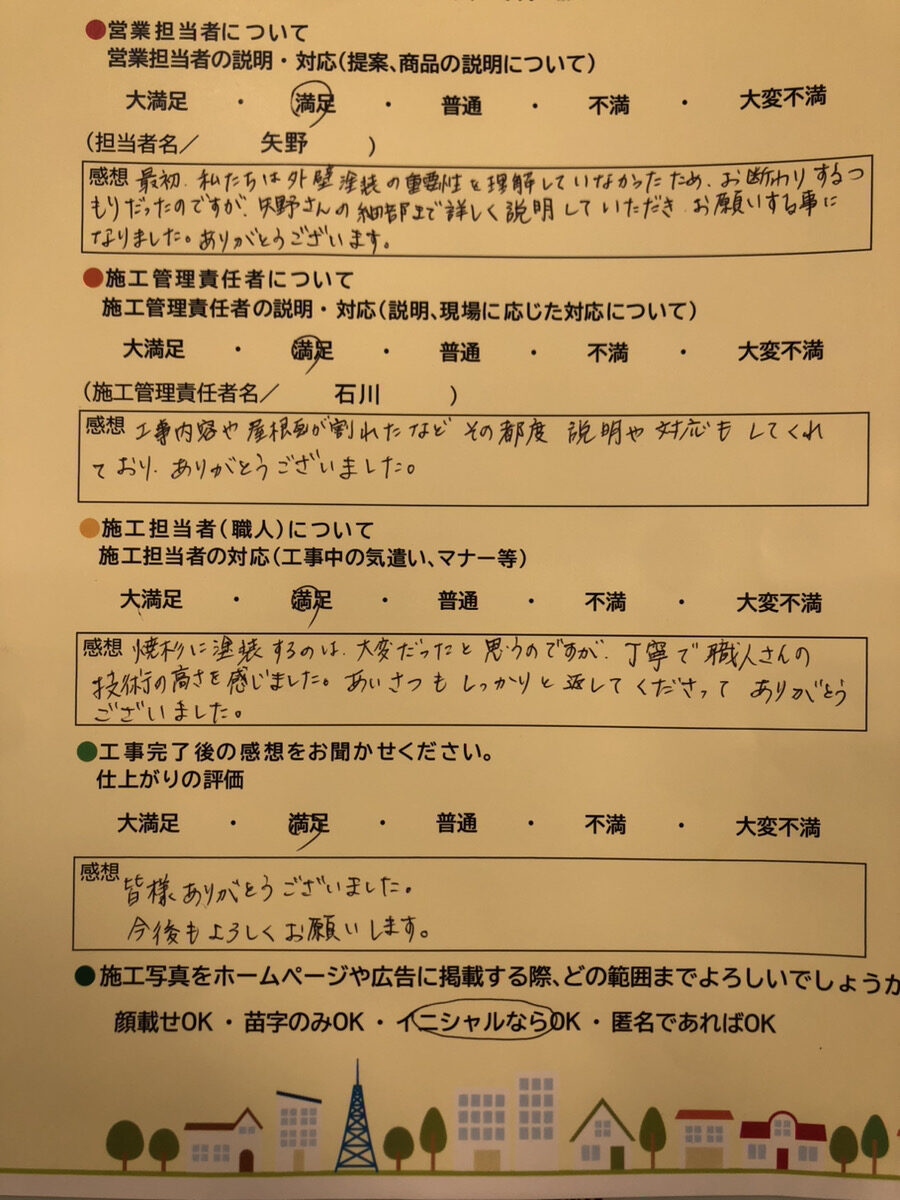 ●営業担当者について
営業担当者の説明・対応(提案、商品の説明について)
大満足 ・ 満足 ・ 普通 ・ 不満 ・ 大変不満
(担当者名／ 矢野 )
感想 最初、私たちは外壁塗装の重要性を理解していなかったため、お断わりするつ
もりだったのですが、矢野さんの細部まで詳しく説明していただき、お願いする事に
なりました。ありがとうございます。
●施工管理責任者について
施工管理責任者の説明・対応(説明、現場に応じた対応について)
大満足 ・ 満足 ・ 普通 ・ 不満 ・ 大変不満
(施工管理責任者名／ 石川 )
感想 工事内容や屋根瓦が割れたなど その都度 説明や対応も してくれ
ており、ありがとうございました。
●施工担当者(職人)について
施工担当者の対応(工事中の気遣い、マナー等)
大満足 ・ 満足 ・ 普通 ・ 不満 ・ 大変不満
感想 焼杉に塗装するのは、大変だったと思うのですが、丁寧で職人さんの
技術の高さを感じました。あいさつも しっかりと返してくださって ありがとう
ございました。
●工事完了後の感想をお聞かせください。
仕上がりの評価
大満足 ・ 満足 ・ 普通 ・ 不満 ・ 大変不満
感想 皆様ありがとうございました。
今後もよろしくお願いします。
●施工写真をホームページや広告に掲載する際、どの範囲までよろしいでしょうか
顔載せOK ・ 苗字のみOK ・ イニシャルならOK ・ 匿名であればOK